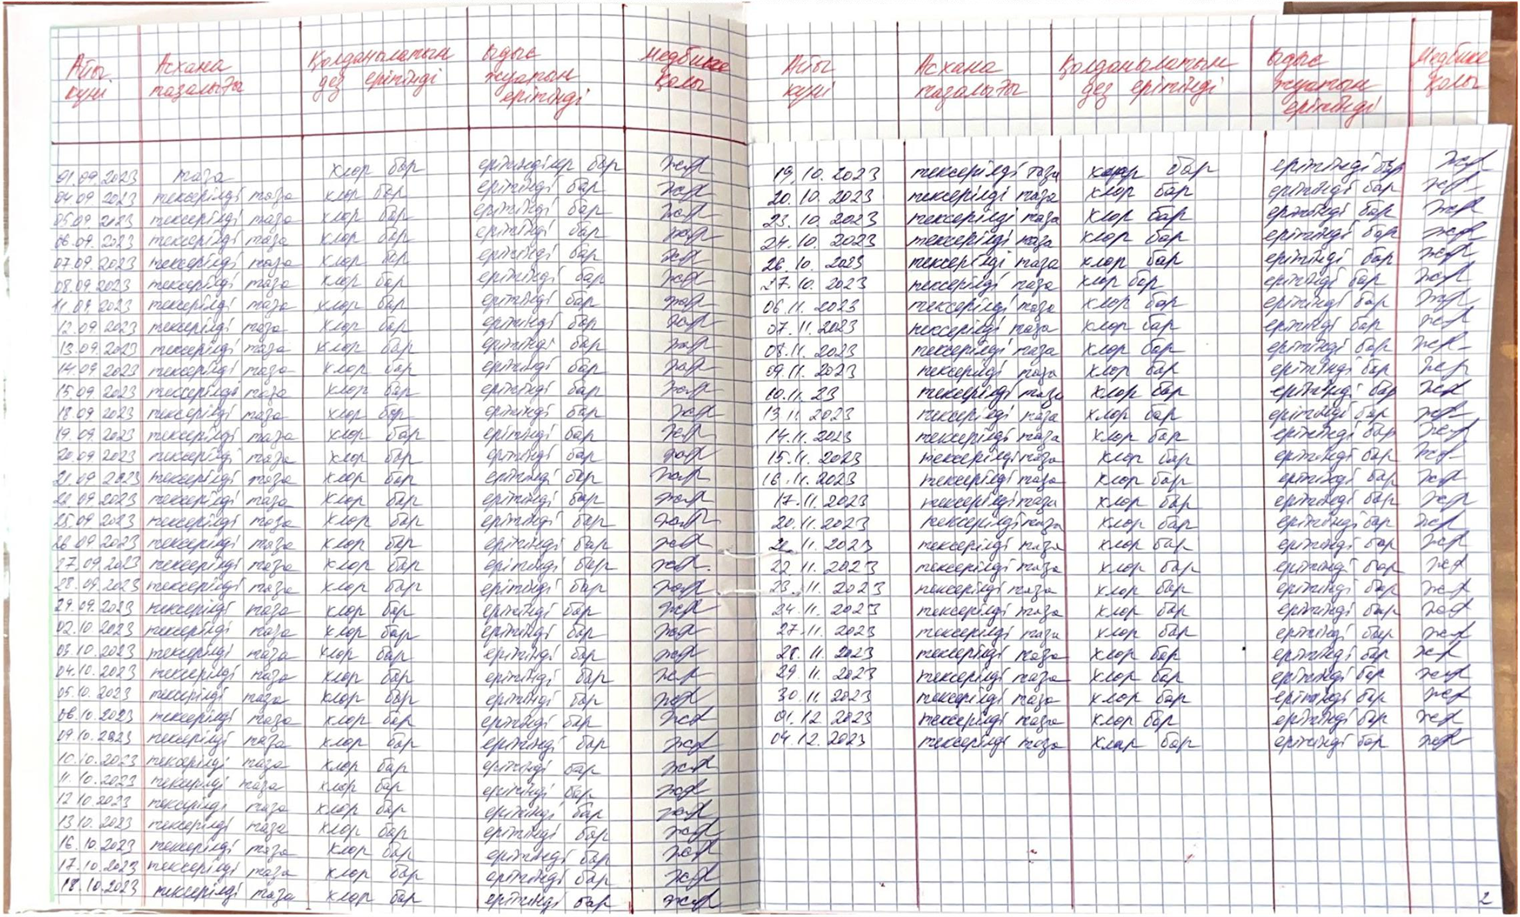 Айы күні | Асхана тазалығы | Қолданылатын дез ерітінді | Ыдыс жуатын ерітінді | Медбике қолы
01.09.2023 таза хлор бар ерітінділер бар
04.09.2023 тексерілді таза хлор бар ерітінді бар
05.09.2023 тексерілді таза хлор бар ерітінді бар
06.09.2023 тексерілді таза хлор бар ерітінді бар
07.09.2023 тексерілді таза хлор бар ерітінді бар
08.09.2023 тексерілді таза хлор бар ерітінді бар
11.09.2023 тексерілді таза хлор бар ерітінді бар
12.09.2023 тексерілді таза хлор бар ерітінді бар
13.09.2023 тексерілді таза хлор бар ерітінді бар
14.09.2023 тексерілді таза хлор бар ерітінді бар
15.09.2023 тексерілді таза хлор бар ерітінді бар
18.09.2023 тексерілді таза хлор бар ерітінді бар
19.09.2023 тексерілді таза хлор бар ерітінді бар
20.09.2023 тексерілді таза хлор бар ерітінді бар
21.09.2023 тексерілді таза хлор бар ерітінді бар
тексерілді таза хлор бар ерітінді бар
25.09.2023 тексерілді таза хлор бар ерітінді бар
26.09.2023 тексерілді таза хлор бар ерітінді бар
27.09.2023 тексерілді таза хлор бар ерітінді бар
28.09.2023 тексерілді таза хлор бар ерітінді бар
29.09.2023 тексерілді таза хлор бар ерітінді бар
02.10.2023 тексерілді таза хлор бар ерітінді бар
03.10.2023 тексерілді таза хлор бар ерітінді бар
04.10.2023 тексерілді таза хлор бар ерітінді бар
05.10.2023 тексерілді таза хлор бар ерітінді бар
06.10.2023 тексерілді таза хлор бар ерітінді бар
09.10.2023 тексерілді таза хлор бар ерітінді бар
10.10.2023 тексерілді таза хлор бар ерітінді бар
11.10.2023 тексерілді таза хлор бар ерітінді бар
12.10.2023 тексерілді таза хлор бар ерітінді бар
13.10.2023 тексерілді таза хлор бар ерітінді бар
16.10.2023 тексерілді таза хлор бар ерітінді бар
17.10.2023 тексерілді таза хлор бар ерітінді бар
18.10.2023 тексерілді таза хлор бар ерітінді бар
Айы күні | Асхана тазалығы | Қолданылатын дез ерітінді | Ыдыс жуатын ерітінді | Медбике қолы
19.10.2023 тексерілді таза хлор бар ерітінді бар
20.10.2023 тексерілді таза хлор бар ерітінді бар
23.10.2023 тексерілді таза хлор бар ерітінді бар
24.10.2023 тексерілді таза хлор бар ерітінді бар
26.10.2023 тексерілді таза хлор бар ерітінді бар
27.10.2023 тексерілді таза хлор бар ерітінді бар
06.11.2023 тексерілді таза хлор бар ерітінді бар
07.11.2023 тексерілді таза хлор бар ерітінді бар
08.11.2023 тексерілді таза хлор бар ерітінді бар
09.11.2023 тексерілді таза хлор бар ерітінді бар
10.11.23 тексерілді таза хлор бар ерітінді бар
13.11.2023 тексерілді таза хлор бар ерітінді бар
14.11.2023 тексерілді таза хлор бар ерітінді бар
15.11.2023 тексерілді таза хлор бар ерітінді бар
16.11.2023 тексерілді таза хлор бар ерітінді бар
17.11.2023 тексерілді таза хлор бар ерітінді бар
20.11.2023 тексерілді таза хлор бар ерітінді бар
21.11.2023 тексерілді таза хлор бар ерітінді бар
22.11.2023 тексерілді таза хлор бар ерітінді бар
23.11.2023 тексерілді таза хлор бар ерітінді бар
24.11.2023 тексерілді таза хлор бар ерітінді бар
27.11.2023 тексерілді таза хлор бар ерітінді бар
28.11.2023 тексерілді таза хлор бар ерітінді бар
29.11.2023 тексерілді таза хлор бар ерітінді бар
30.11.2023 тексерілді таза хлор бар ерітінді бар
01.12.2023 тексерілді таза хлор бар ерітінді бар
04.12.2023 тексерілді таза хлор бар ерітінді бар
2